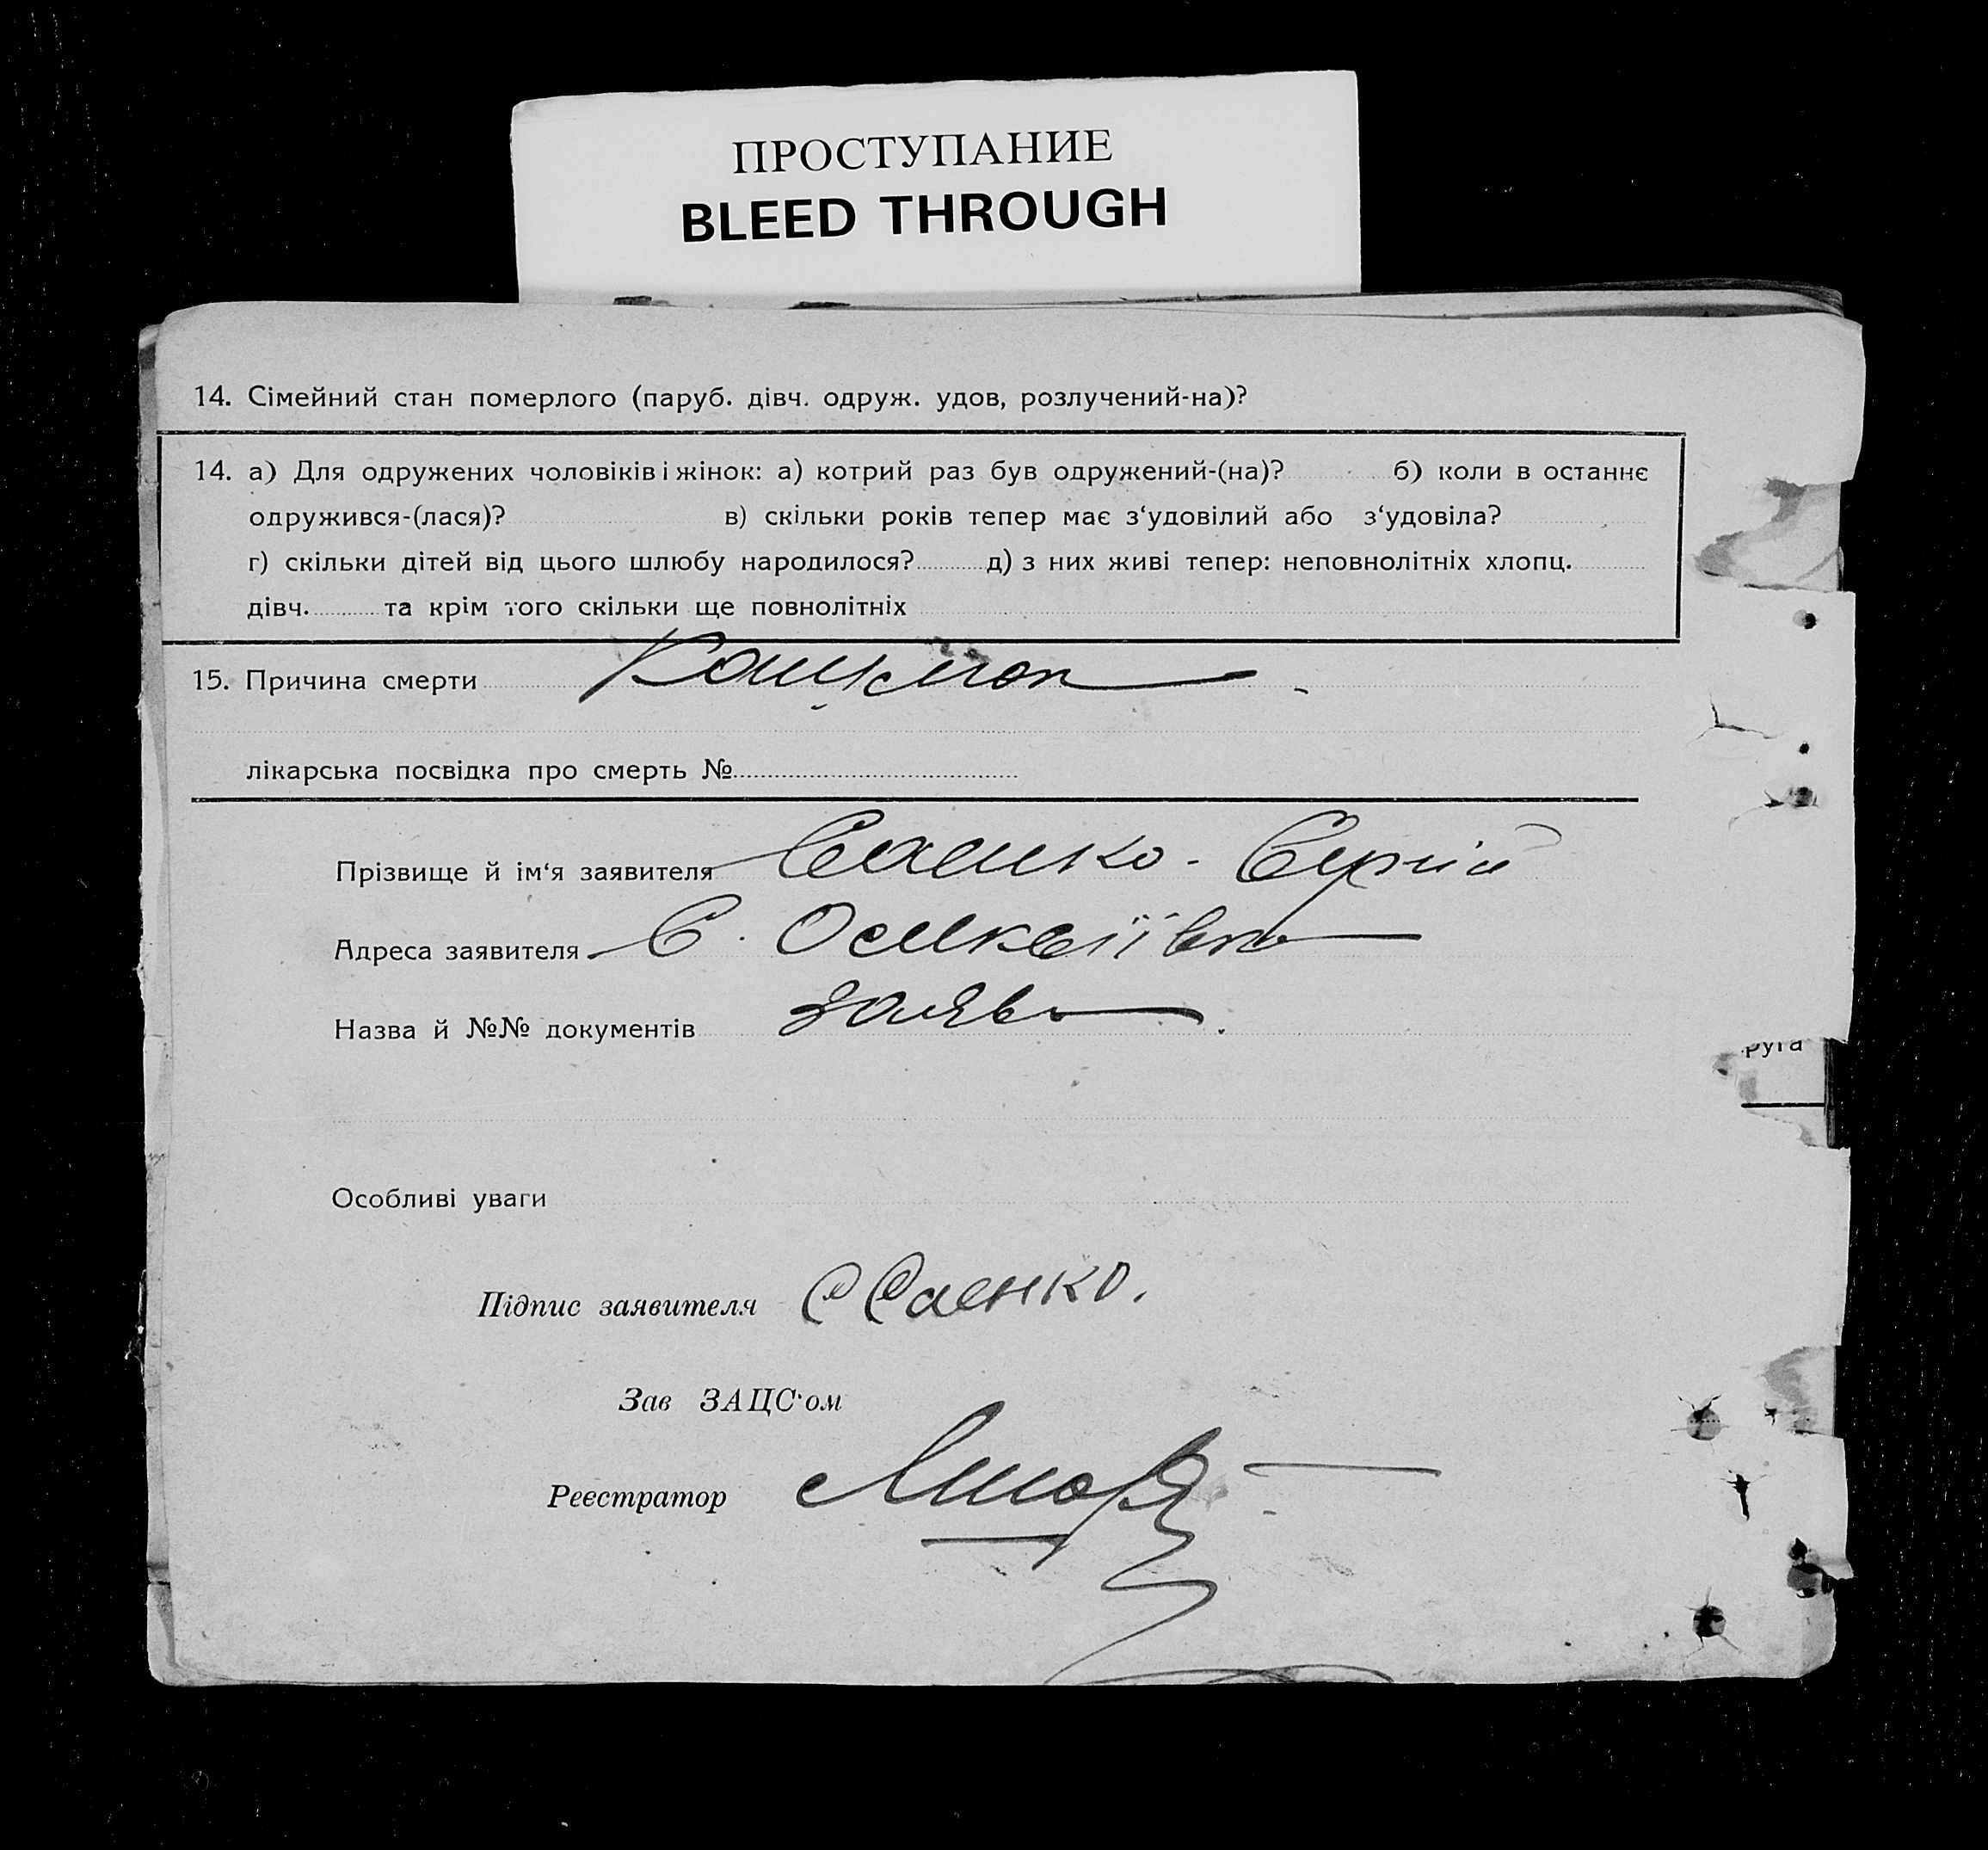 ПРОСТУПАНИЕ
BLEED THROUGH
14. Сімейний стан померлого (паруб. дівч. одруж. удов, розлучений-на)?
14. а) Для одружених чоловіків і жінок: а) котрий раз був одружений-(на)? б) коли в останнє
одружився-(лася)? в) скільки років тепер має з‘удовілий або з‘удовіла?
г) скільки дітей від цього шлюбу народилося? д) з них живі тепер: неповнолітніх хлопц.
дівч. та крім того скільки ще повнолітніх
15. Причина смерти
лікарська посвідка про смерть №
Прізвище й ім‘я заявителя Саенко - Сергій
Адреса заявителя С.
Назва й №№ документів заява.
руга
Особливі уваги
Підпис заявителя С Саенко.
Зав ЗАЦС‘ом
Реєстратор